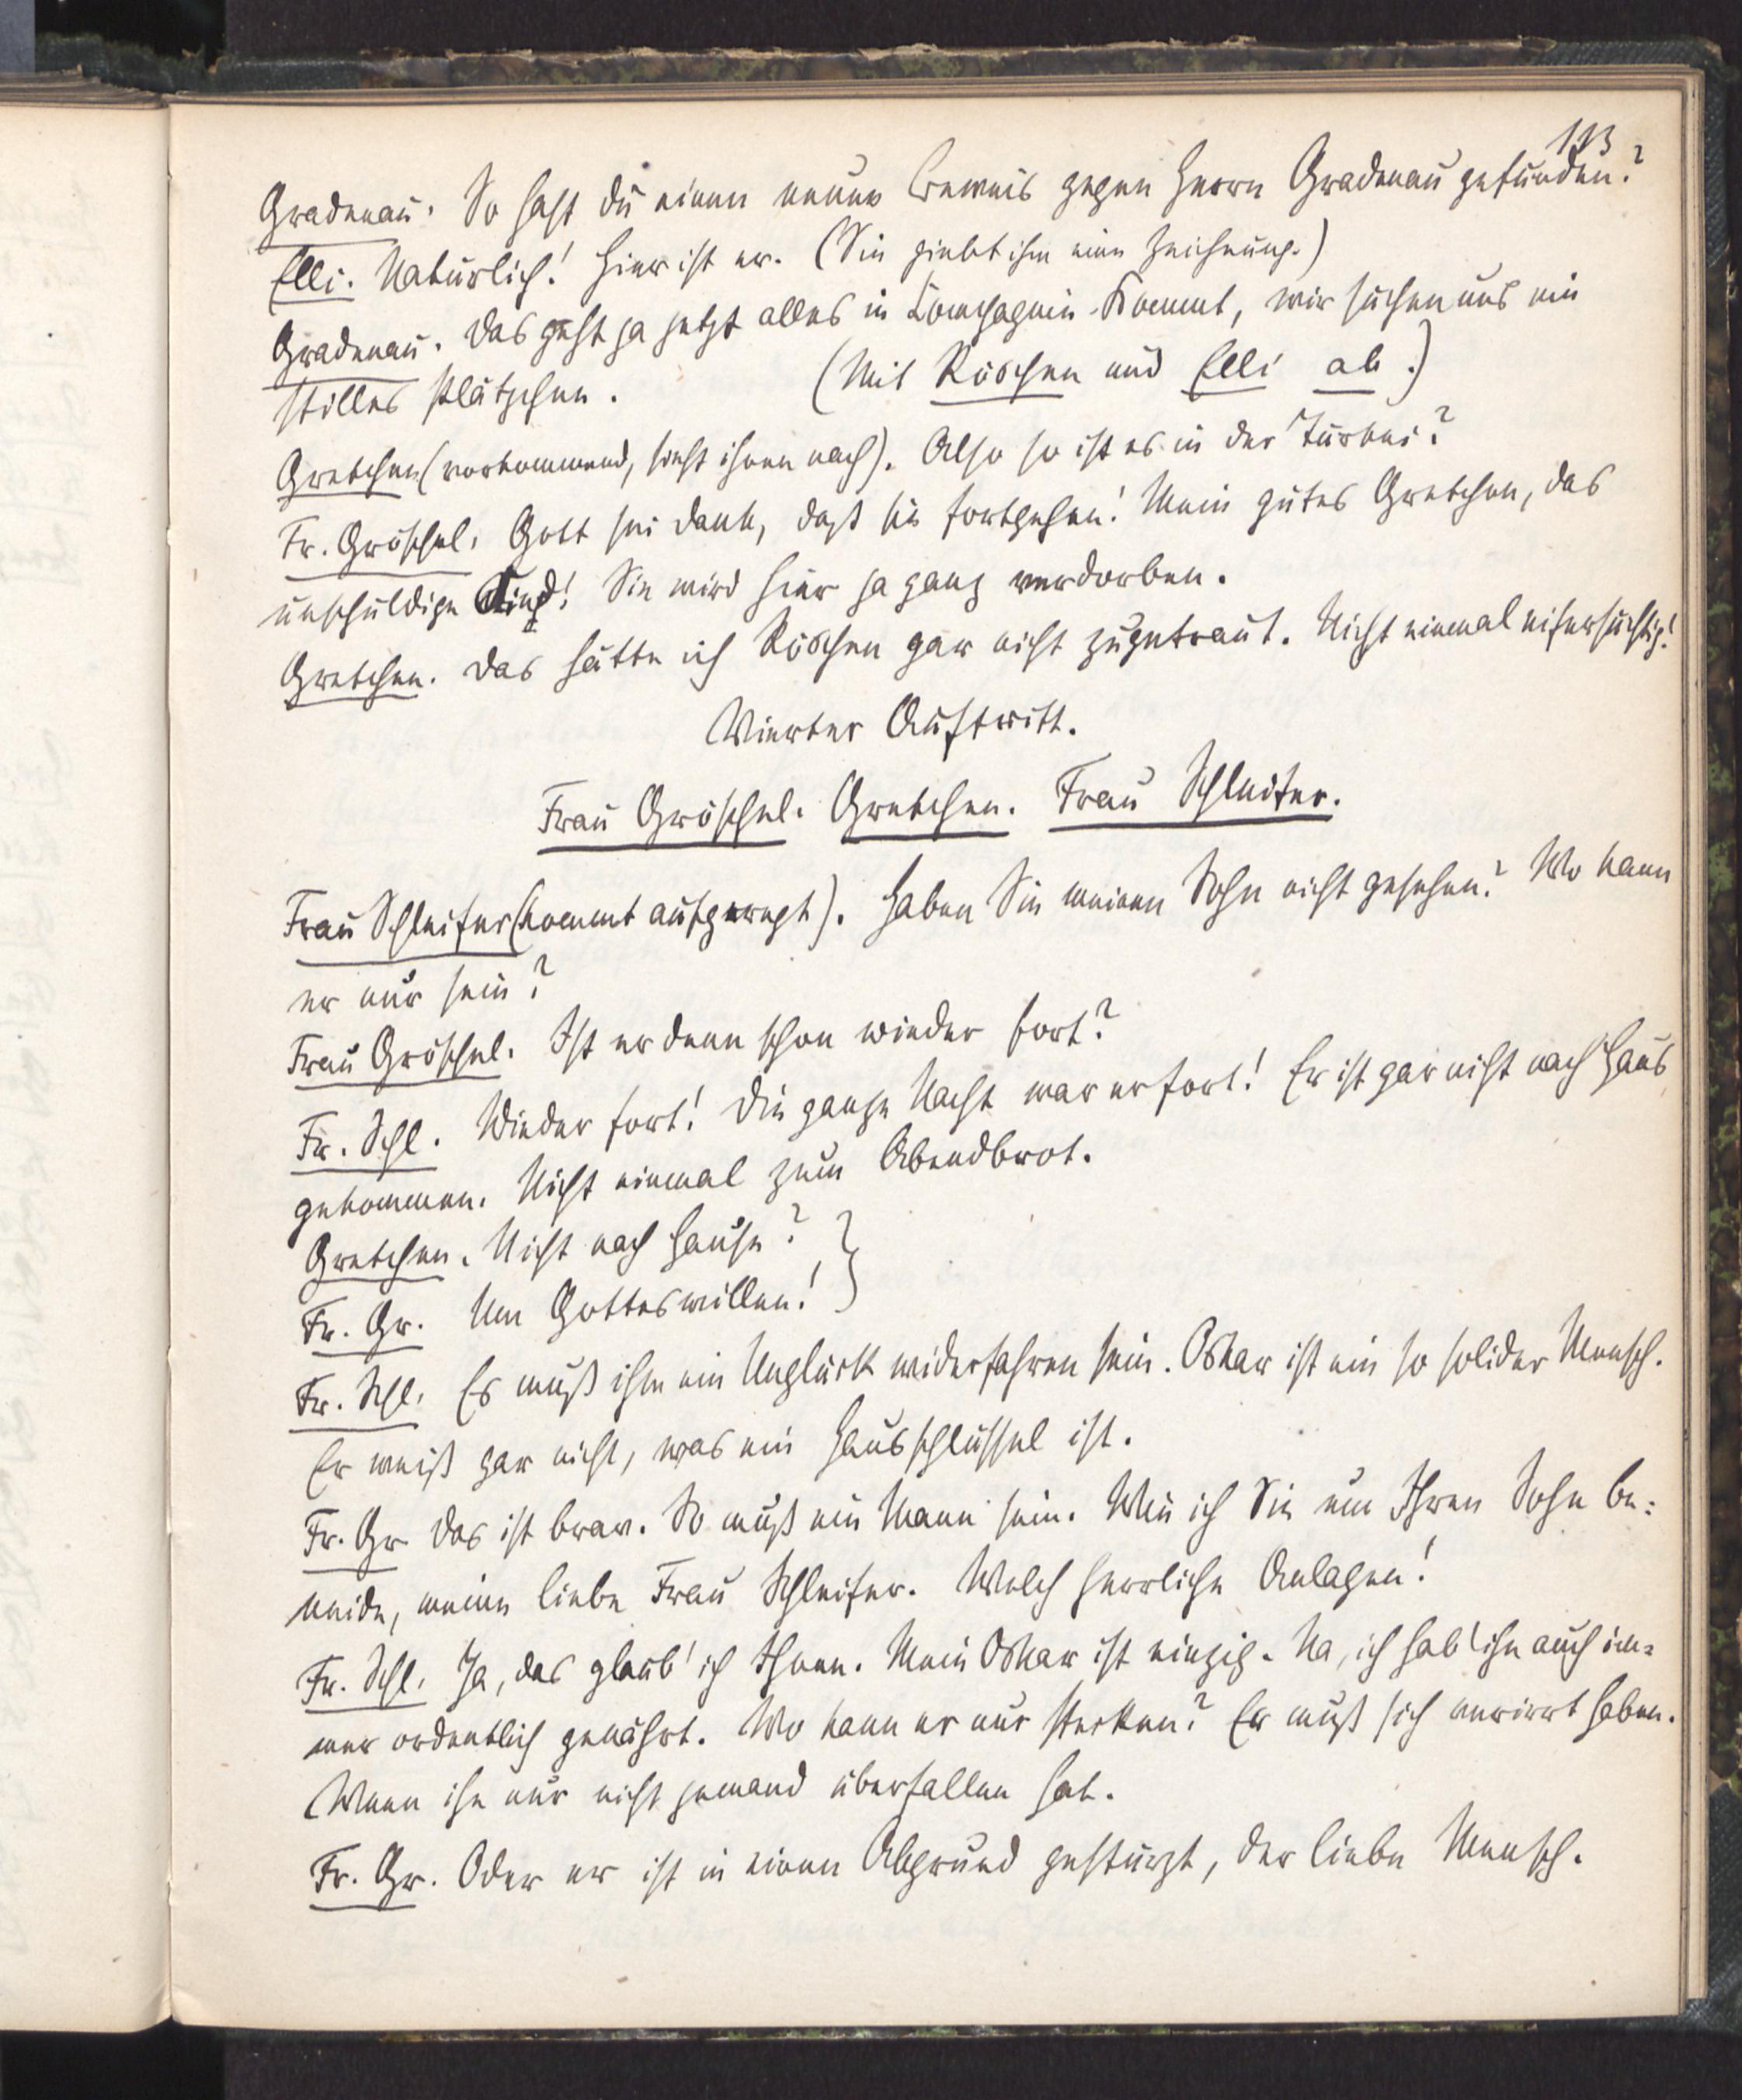 113
Gradenau. So hast du einen neuen Beweis gegen Herrn Gradenau gefunden?
Elli. Natürlich! Hier ist er. (Sie giebt ihm eine Zeichnung.)
Gradenau. Das geht ja jetzt alles in Compagnie. Kommt, wir suchen uns ein
stilles Plätzchen. (Mit Röschen und Elli ab.)
Gretchen (vorkommend, sieht ihnen nach). Also so ist es in der Türkei?
Fr. Gröschel. Gott sei Dank, daß sie fortgehen! Mein gutes Gretchen, das
unschuldige Kind! Sie wird hier ja ganz verdorben.
Gretchen. Das hätte ich Röschen gar nicht zugetraut. Nicht einmal eifersüchtig!
Vierter Auftritt.
Frau Gröschel. Gretchen. Frau Schleifer.
Frau Schleifer (kommt aufgeregt). Haben Sie meinen Sohn nicht gesehen? Wo kann
er nur sein?
Frau Gröschel. Ist er denn schon wieder fort?
Fr. Schl. Wieder fort! Die ganze Nacht war er fort! Er ist gar nicht nach Haus
gekommen. Nicht einmal zum Abendbrot.
Gretchen. Nicht nach Hause? }
Fr. Gr. Um Gotteswillen! }
Fr. Schl. Es muß ihm ein Unglück widerfahren sein. Oskar ist ein so solider Mensch.
Er weiß gar nicht, was ein Hausschlüssel ist.
Fr. Gr. Das ist brav. So muß ein Mann sein. Wie ich Sie um Ihren Sohn be-
neide, meine liebe Frau Schleifer. Welch herrliche Anlagen!
Fr. Schl. Ja, das glaub' ich Ihnen. Mein Oskar ist einzig. Na, ich hab' ihn auch im-
mer ordentlich genährt. Wo kann er nur stecken? Er muß sich verirrt haben.
Wenn ihn nur nicht jemand überfallen hat.
Fr. Gr. Oder er ist in einen Abgrund gestürzt, der liebe Mensch.